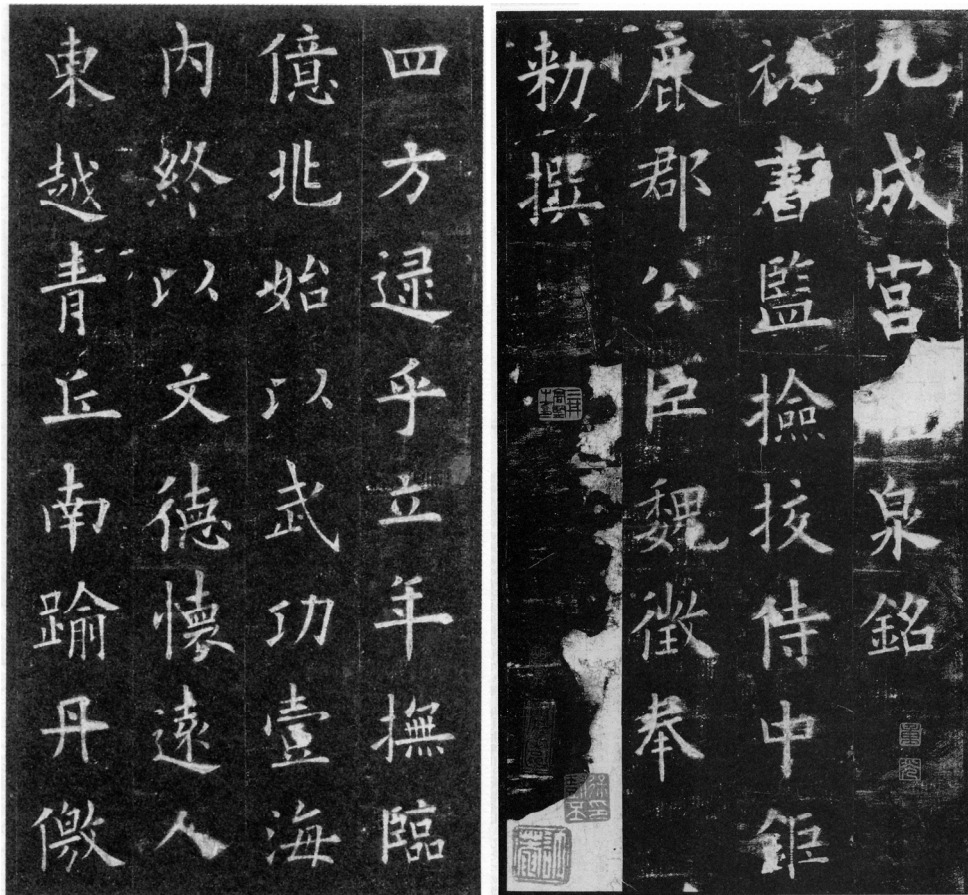 九成宮泉銘
祕書監撿挍侍中鉅
鹿郡公臣魏徵奉
勑撰
四方逮乎立年撫臨
億兆始以武功壹海
內終以文德懷遠人
東越青丘南踰丹儌